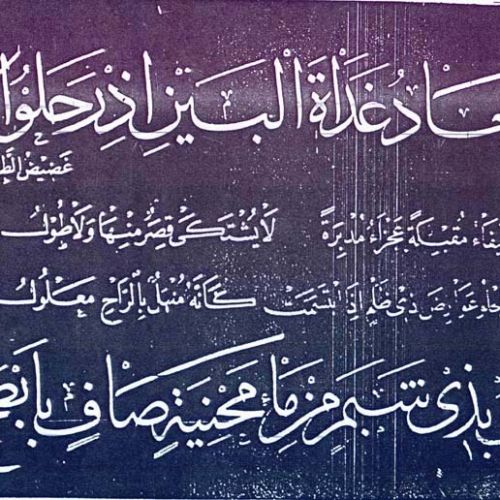 عَادُ غَدَاةَ الْبَيْنِ اِذْ رَحَلُوا
غَضِيضُ الطَّ
يْفَاءُ مُقْبِلَةً عَجْزَاءُ مُدْبِرَةً لَا يُشْتَكَى قِصَرٌ مِنْهَا وَلَا طُولُ
تَجْلُو عَوَارِضَ ذِي ظَلْمٍ إِذَا ابْتَسَمَتْ كَأَنَّهُ مُنْهَلٌ بِالرَّاحِ مَعْلُولُ
بِذِي شَبَمٍ مِنْ مَاءِ مَحْنِيَةٍ صَافٍ بِأَبْطَحَ